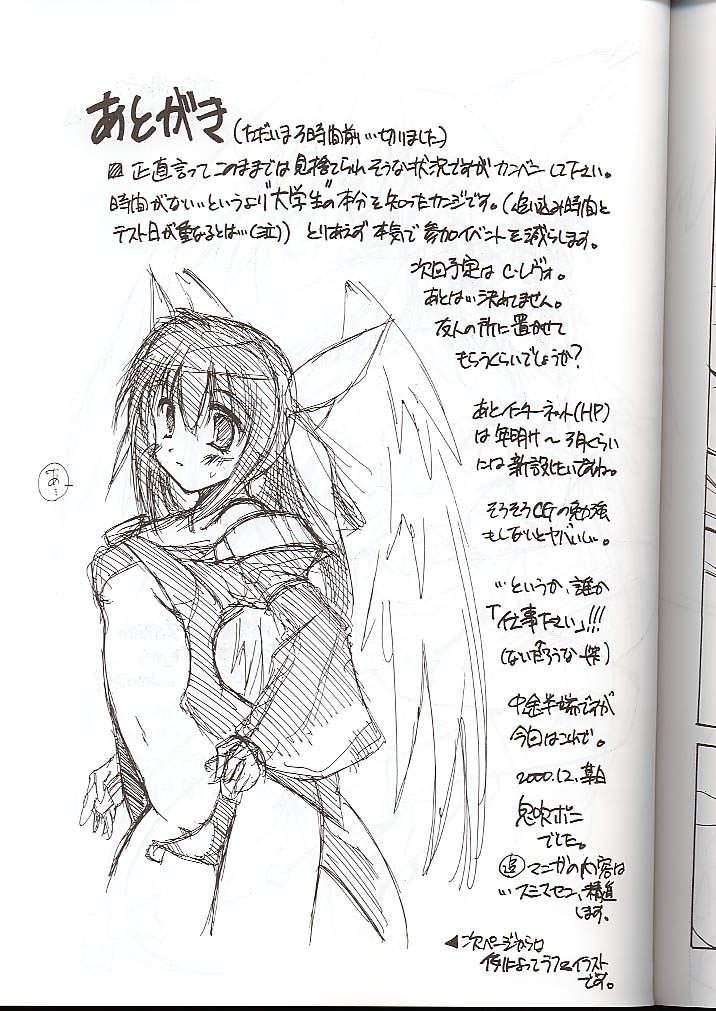 あとがき (ただいま3時間前…切りました)
正直言ってこのままでは見捨てられそうな状況ですがカンベンして下さい。
時間がない…というより"大学生"の本分を知ったカンジです。(追い込み時間と
テスト日が重なるとは…(泣)) とりあえず本気で参加イベントを減らします。
次回予定はC・レヴォ。
あとは…決れてません。
友人の所に置かせて
もらうくらいでしょうか?
あとインターネット(HP)
は年明け〜3月くらい
には新設したいですね。
そろそろCGの勉強
もしないとヤバいし…。
…というか、誰か
「仕事下さい」!!!
(ないだろうな…)
中途半端ですが
今回はこれで。
2000.12.某日
息吹ポン
でした。
追 マンガの内容は
…スミマセン、精進
します。
◀次ページからは
例によってラフとイラスト
です。
あ…